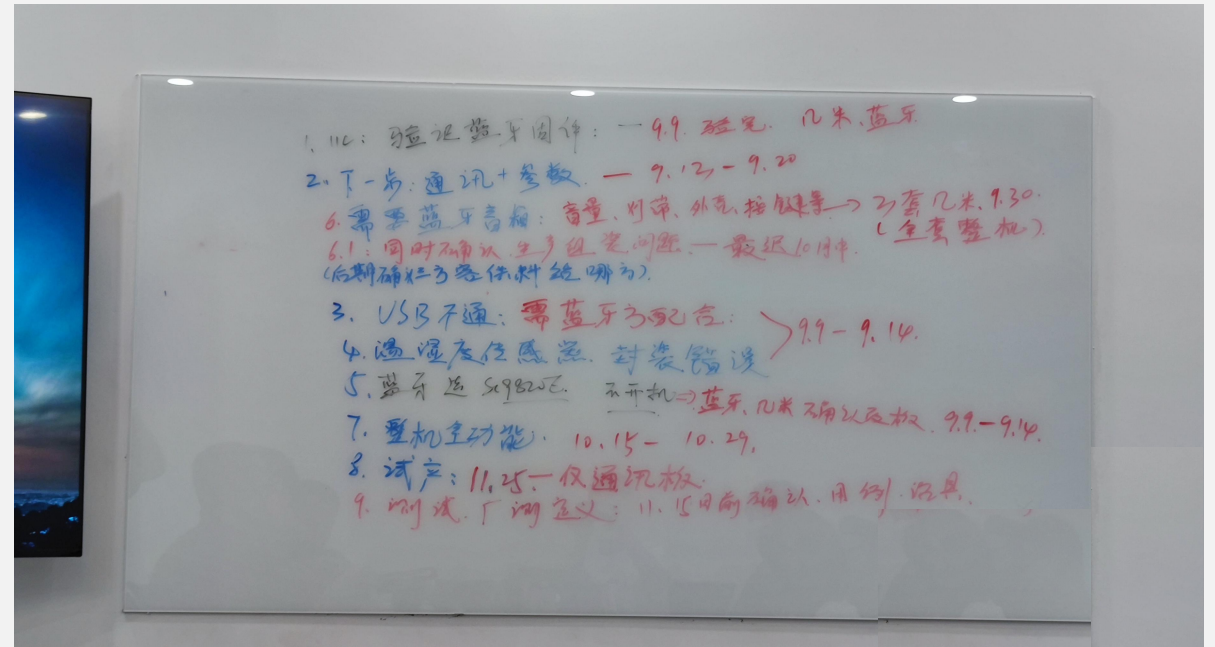 1. IIC: 验证蓝牙固件: — 9.9. 验完. 几米、蓝牙
2. 下一步: 通讯+参数. — 9.12 - 9.20
6. 需要蓝牙音箱: 音量、灯带、外壳、按键等 → 2套几米、9.30.
(全套整机).
6.1: 同时确认生产组装问题. — 最迟10月中.
(后期确 三方 料给哪方).
3. USB不通: 需蓝牙方配合:
4. 温湿度传感器. 封装错误 > 9.9 - 9.14.
5. 蓝牙选 SC9820E. 不开机 ⇒ 蓝牙、几米 确认改板. 9.9. - 9.14.
7. 整机全功能. 10.15 - 10.29.
8. 试产: 11.25 — 仅通讯板.
9. 测试. 厂测定义: 11.15日前确认. 用例. 治具.